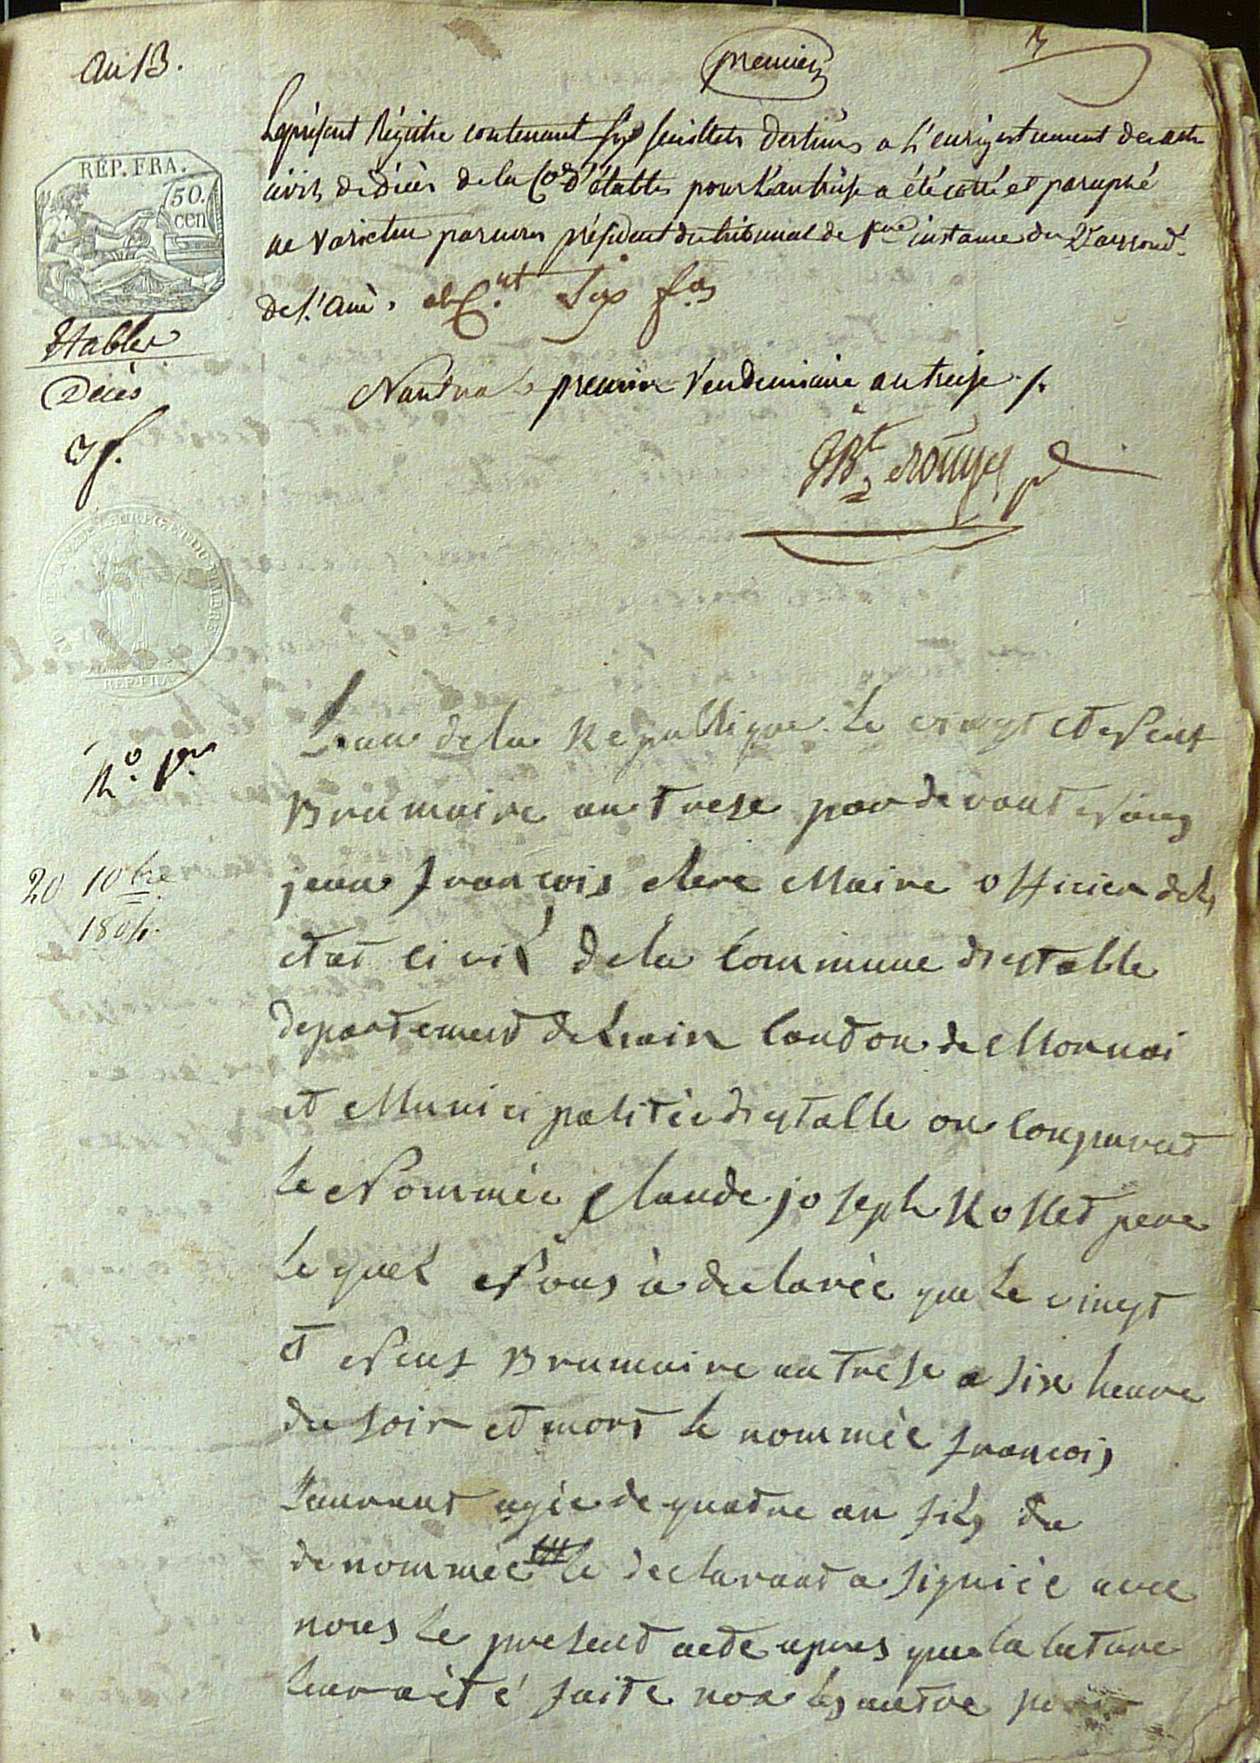 an 13.
premier
Le présent Régistre contenant six feuillets destinés a L'enrigistrement des actes
civils de décès de la Cne d'étables pour L'an treise a été cotté et paraphé
ne varietur par nous président du tribunal de 1ere instance du 2e arrond.
de L'ain. Six f.
RÉP. FRA.
50.
cen
Etables
Décès
Nantua premier Vendemiaire an treise
REP. FRA.
n.o 1er
20 10bre
1804.
Lan de la Republique le vingt et neuf
Brumaire an trese par devant nous
jean françois Maire officier de l
etat civil de la Commune destable
departement de Lain Canton de
et Municipalitée destalle on Comparut
le Nommée Claude joseph pere
le quel Nous à declarée que le vingt
et Neuf Brumaire an trese a six heure
du soir et mort le nommée francois
Laurent agée de quatre an fils du
denommée le declarant a signiée avec
nous le present acte apres que la lecture
leur a été faite non les autre